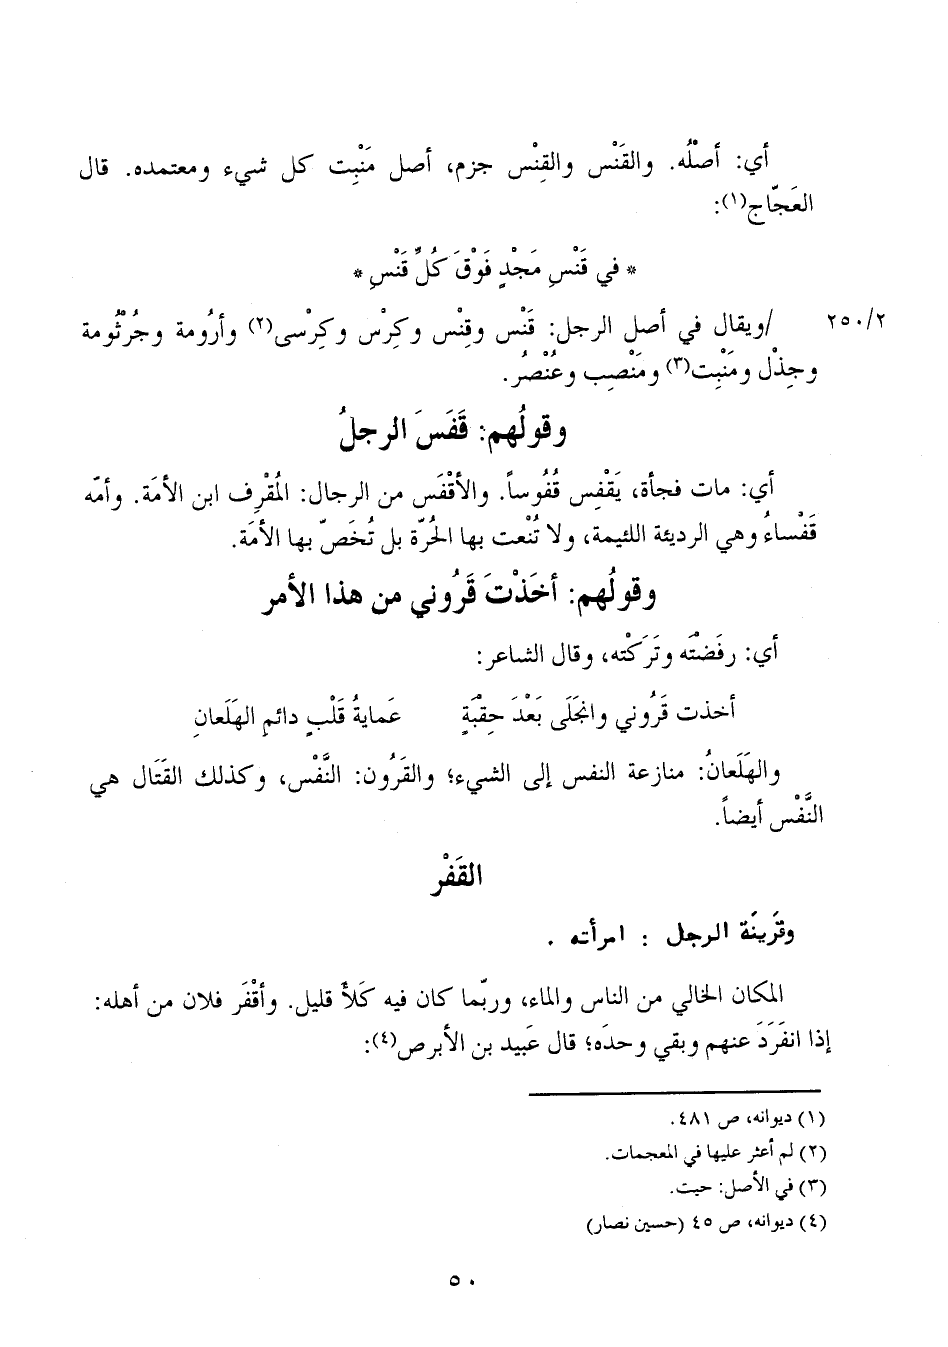 أي: أصْلُه. والقَنْس والقِنْس جزم، أصل مَنْبِت كل شيء ومعتمده. قال
العَجّاج(١):
* في قَنْسِ مَجْدٍ فَوْقَ كُلِّ قَنْسِ *
٢٥٠/٢ /ويقال في أصل الرجل: قَنْس وقِنْس وكِرْس وكِرْسى(٢) وأرُومة وجُرْثُومة
وجِذْل ومَنْبِت(٣) ومَنْصِب وعُنْصُر.
وقولُهم: قَفَسَ الرجلُ
أي: مات فجأة، يَقْفِس قُفُوساً. والأقْفَس من الرجال: المُقْرِف ابن الأمَة. وأمّه
قَفْساءُ وهي الرديئة اللئيمة، ولا تُنْعت بها الحُرّة بل تُخَصّ بها الأمَة.
وقولُهم: أخَذْتَ قَرُوني من هذا الأمر
أي: رفَضْتَه وتَرَكْته، وقال الشاعر:
أخذت قَرُوني وانجَلَى بَعْدَ حِقْبَةٍ عَمايةُ قَلْبٍ دائم الهَلَعانِ
والهَلَعانُ: منازعة النفس إلى الشيء؛ والقَرُون: النَّفْس، وكذلك القَتَال هي
النَّفْس أيضاً.
القَفْر
وقَرِينَة الرجل : امرأته .
المكان الخالي من الناس والماء، وربّما كان فيه كَلأ قليل. وأقْفَر فلان من أهله:
إذا انفَرَدَ عنهم وبقي وحدَه؛ قال عَبيد بن الأبرص(٤):
(١) ديوانه، ص ٤٨١.
(٢) لم أعثر عليها في المعجمات.
(٣) في الأصل: حيت.
(٤) ديوانه، ص ٤٥ (حسين نصار)
٥٠